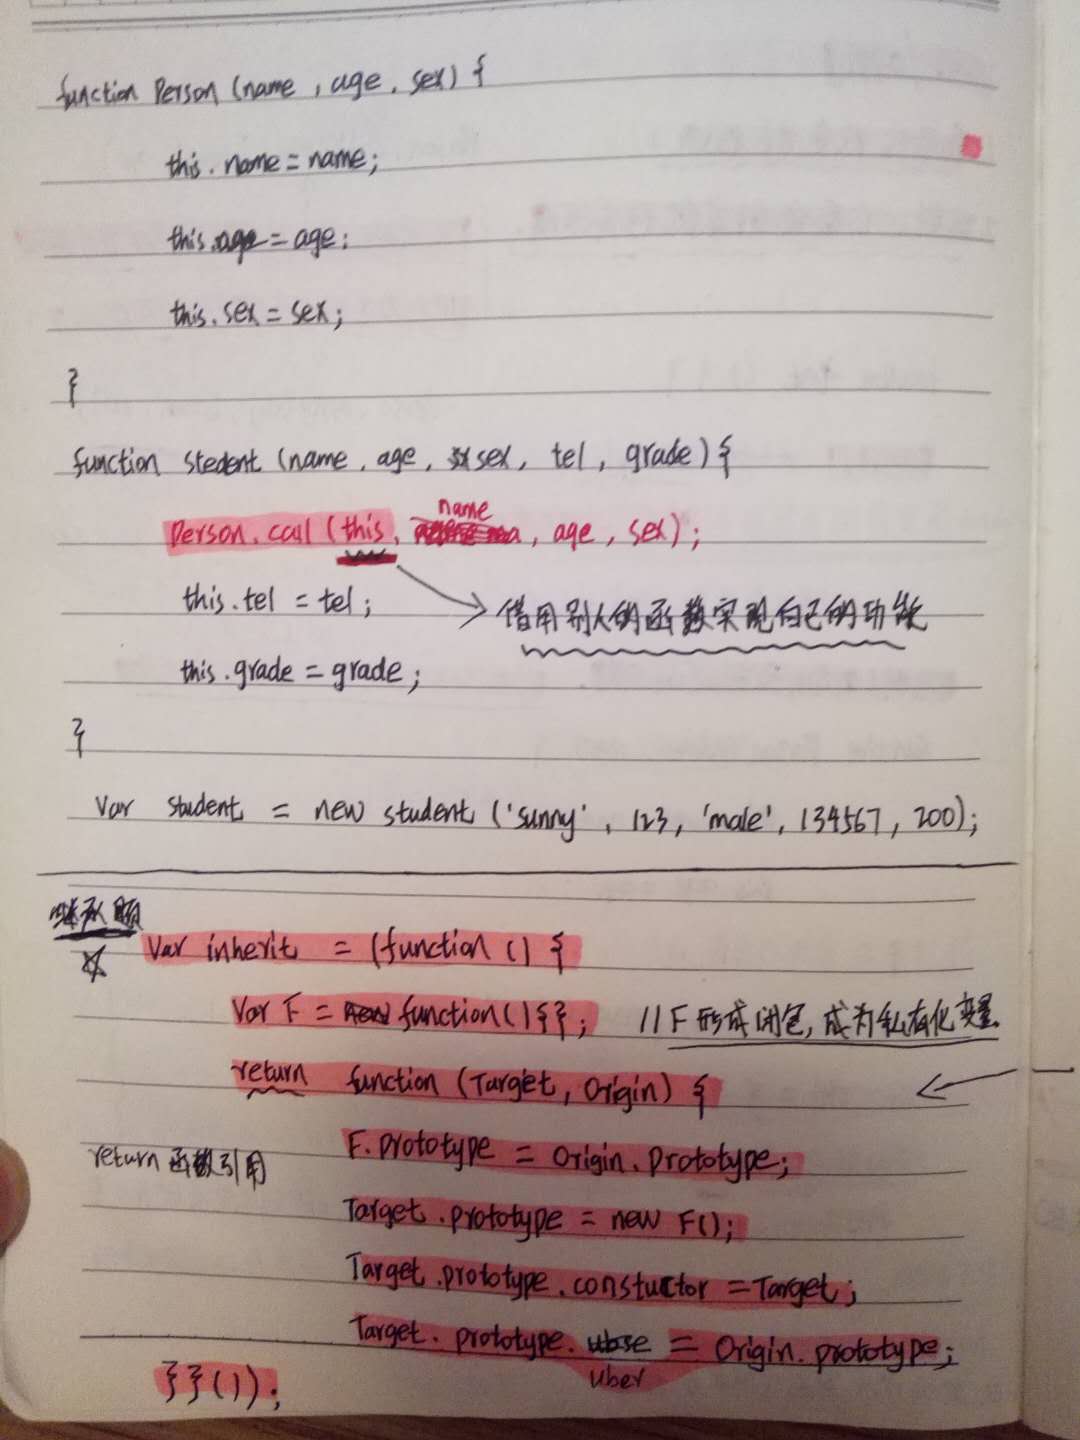 function Person (name , age , sex) {
this.name = name;
this.age = age;
this.sex = sex;
}
function stedent (name , age , sex , tel , grade) {
Person.call (this , name , age , sex);
this.tel = tel;
借用别人的函数实现自己的功能
this.grade = grade;
}
Var student = new student ('sunny' , 123 , 'male' , 134567 , 200);
继承
Var inherit = (function () {
Var F = function () {}; //F形成闭包,成为私有化变量
return function (Target , Origin) {
return 函数引用
F.prototype = Origin.prototype;
Target.prototype = new F();
Target.prototype.constuctor = Target;
Target.prototype.uber = Origin.prototype;
}}());